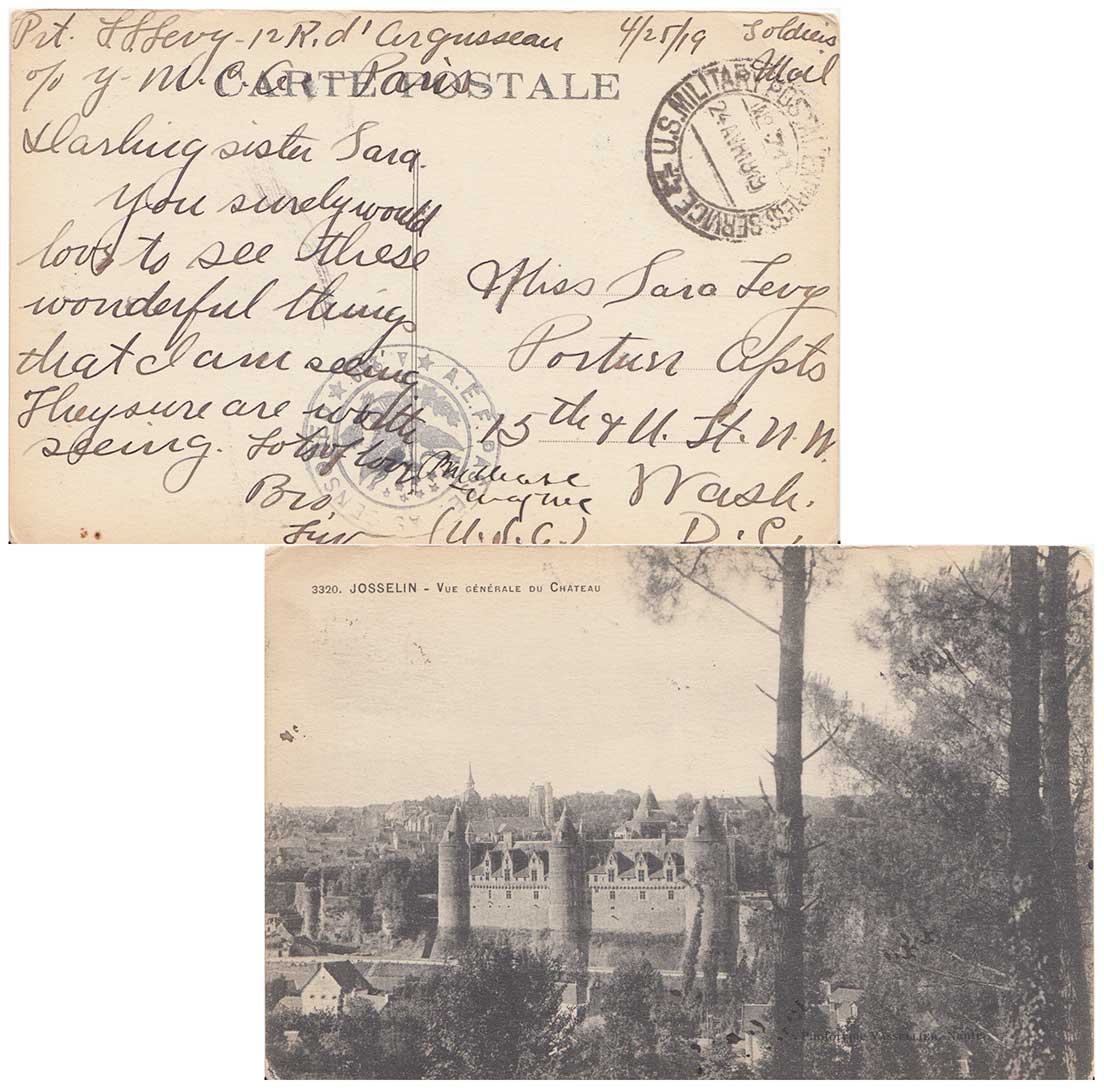 Pvt. S S Levy - 12 R. d'Argusseau 4/25/19 Soldiers
c/o Y.M.C.A. Paris Mail
CARTE POSTALE
U.S. MILITARY POSTAL EXPRESS SERVICE
24 AVR 1919
No
Darling sister Sara.
You surely would
love to see these
wonderful things
that I am seeing
They sure are worth
seeing. Lots of love
Bro.
Miss Sara Levy
Apts
15th & U. St. N.W.
Wash.
(U.S.A.) D.C.
A.E.F.
3320. JOSSELIN - VUE GÉNÉRALE DU CHÂTEAU
Phototypie VASSELLIER, Nantes